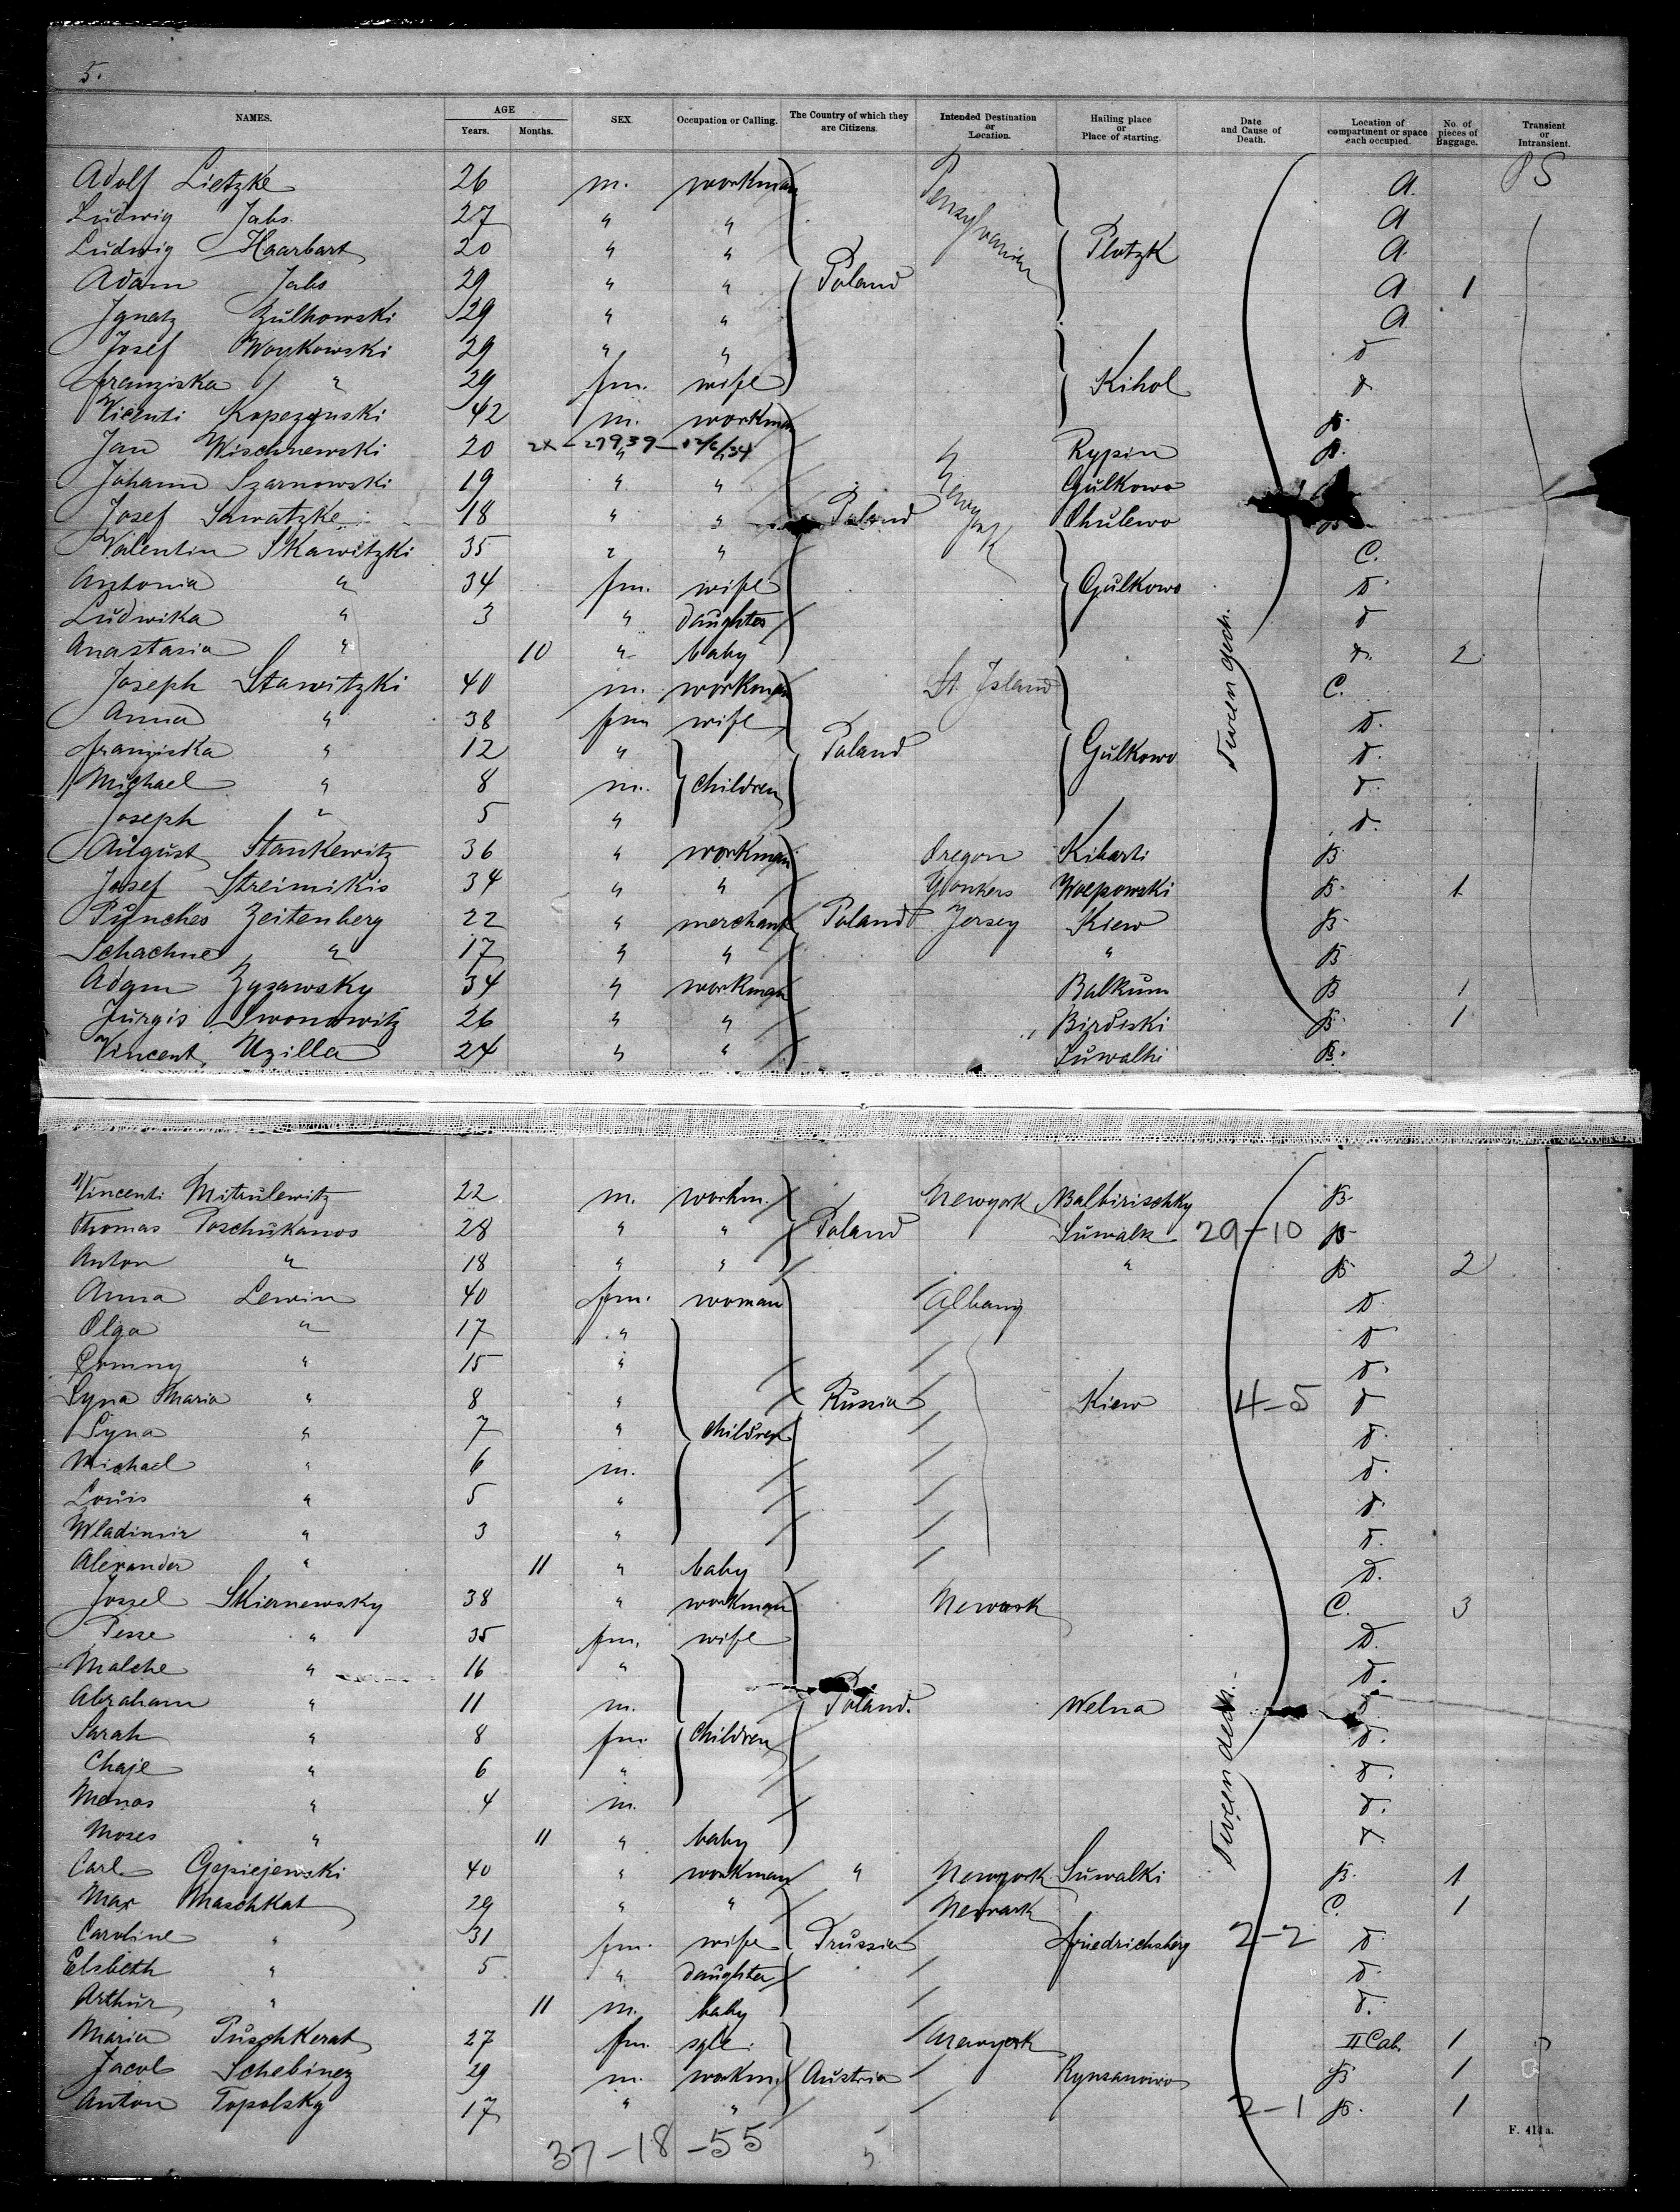 5.
NAMES. AGE Years. Months. SEX. Occupation or Calling. The Country of which they are Citizens. Intended Destination or Location. Hailing place or Place of starting. Date and Cause of Death. Location of compartment or space each occupied. No. of pieces of Baggage. Transient or Intransient.
Adolf Lietzke 26 m. workman A.
Ludwig Jabs 27 " " A
Ludwig Haarbart 20 " " Plotzk A.
Adam Jabs 29 " " Poland A 1
Ignatz Gulkowski 29 " " A
Josef Woykowski 29 " " D
Franziska " 29 fm. wife Kikol D
Vicenti Kopczynski 42 m. workman B.
Jan Wischnewski 20 2x-27939-12/6/34 " " Rypin B.
Johann Szarnowski 19 " " Gulkowo
Josef Sawatzke 18 " " Poland New York Chulewo B
Valentin Skawitzki 35 " " C.
Antonia " 34 fm. wife Gulkowo D.
Ludwika " 3 " daughter D
Anastasia " 10 " baby D. 2
Joseph Stawitzki 40 m. workman St. Island C.
Anna " 38 fm wife D.
Franziska " 12 " Poland Gulkowo D.
Michael " 8 m. children D.
Joseph " 5 " D.
August Stankewitz 36 " workman Oregon Kibarti B
Josef Streimikis 34 " " Yonkers Woepowski B. 1
Pynches Zeitenberg 22 " merchant Poland Jersey Kiew B
Schachne " 17 " " " B
Adam Zyzawsky 34 " workman Balkum B 1
Jurgis Iwonowitz 26 " " " Birdiski B. 1
Vincent Uzilla 24 " " Suwalki B.
Tween deck.
Vincenti Mitulewitz 22 m. workm. Newyork Balbirischky B.
Thomas Poschukanos 28 " " Poland Suwalk 29-10 B
Anton " 18 " " " B 2
Anna Lewin 40 fm. woman Albany D.
Olga " 17 " D
Romny " 15 " D.
Lyna Maria " 8 " Russia Kiew 4-5 D
Lyna " 7 " children D.
Michael " 6 m. D.
Louis " 5 " D.
Wladimir " 3 " D.
Alexander " 11 " baby D.
Jossel Skiernewsky 38 " workman Newark C. 3
Pesse " 35 fm. wife D.
Malche " 16 " D.
Abraham " 11 m. Poland. Welna D.
Sarah " 8 fm. children D.
Chaje " 6 " D.
Menas " 4 m. D.
Moses " 11 " baby D.
Carl Gepiejewski 40 " workman " Newyork Suwalki B. 1
Max Maschkat 29 " " Newark C. 1
Caroline " 31 fm. wife Prussia Friedrichsberg 2-2 D
Elsbeth " 5 " daughter D.
Arthur " 11 m. baby D.
Maria Puschkerat 27 fm. sgle. Newyork II Cab. 1
Jacob Schebinez 29 m. workm. Austria Rymanowo B 1
Anton Topolsky 17 " " 2-1 B. 1
Tween deck.
37-18-55 5
F. 414a.